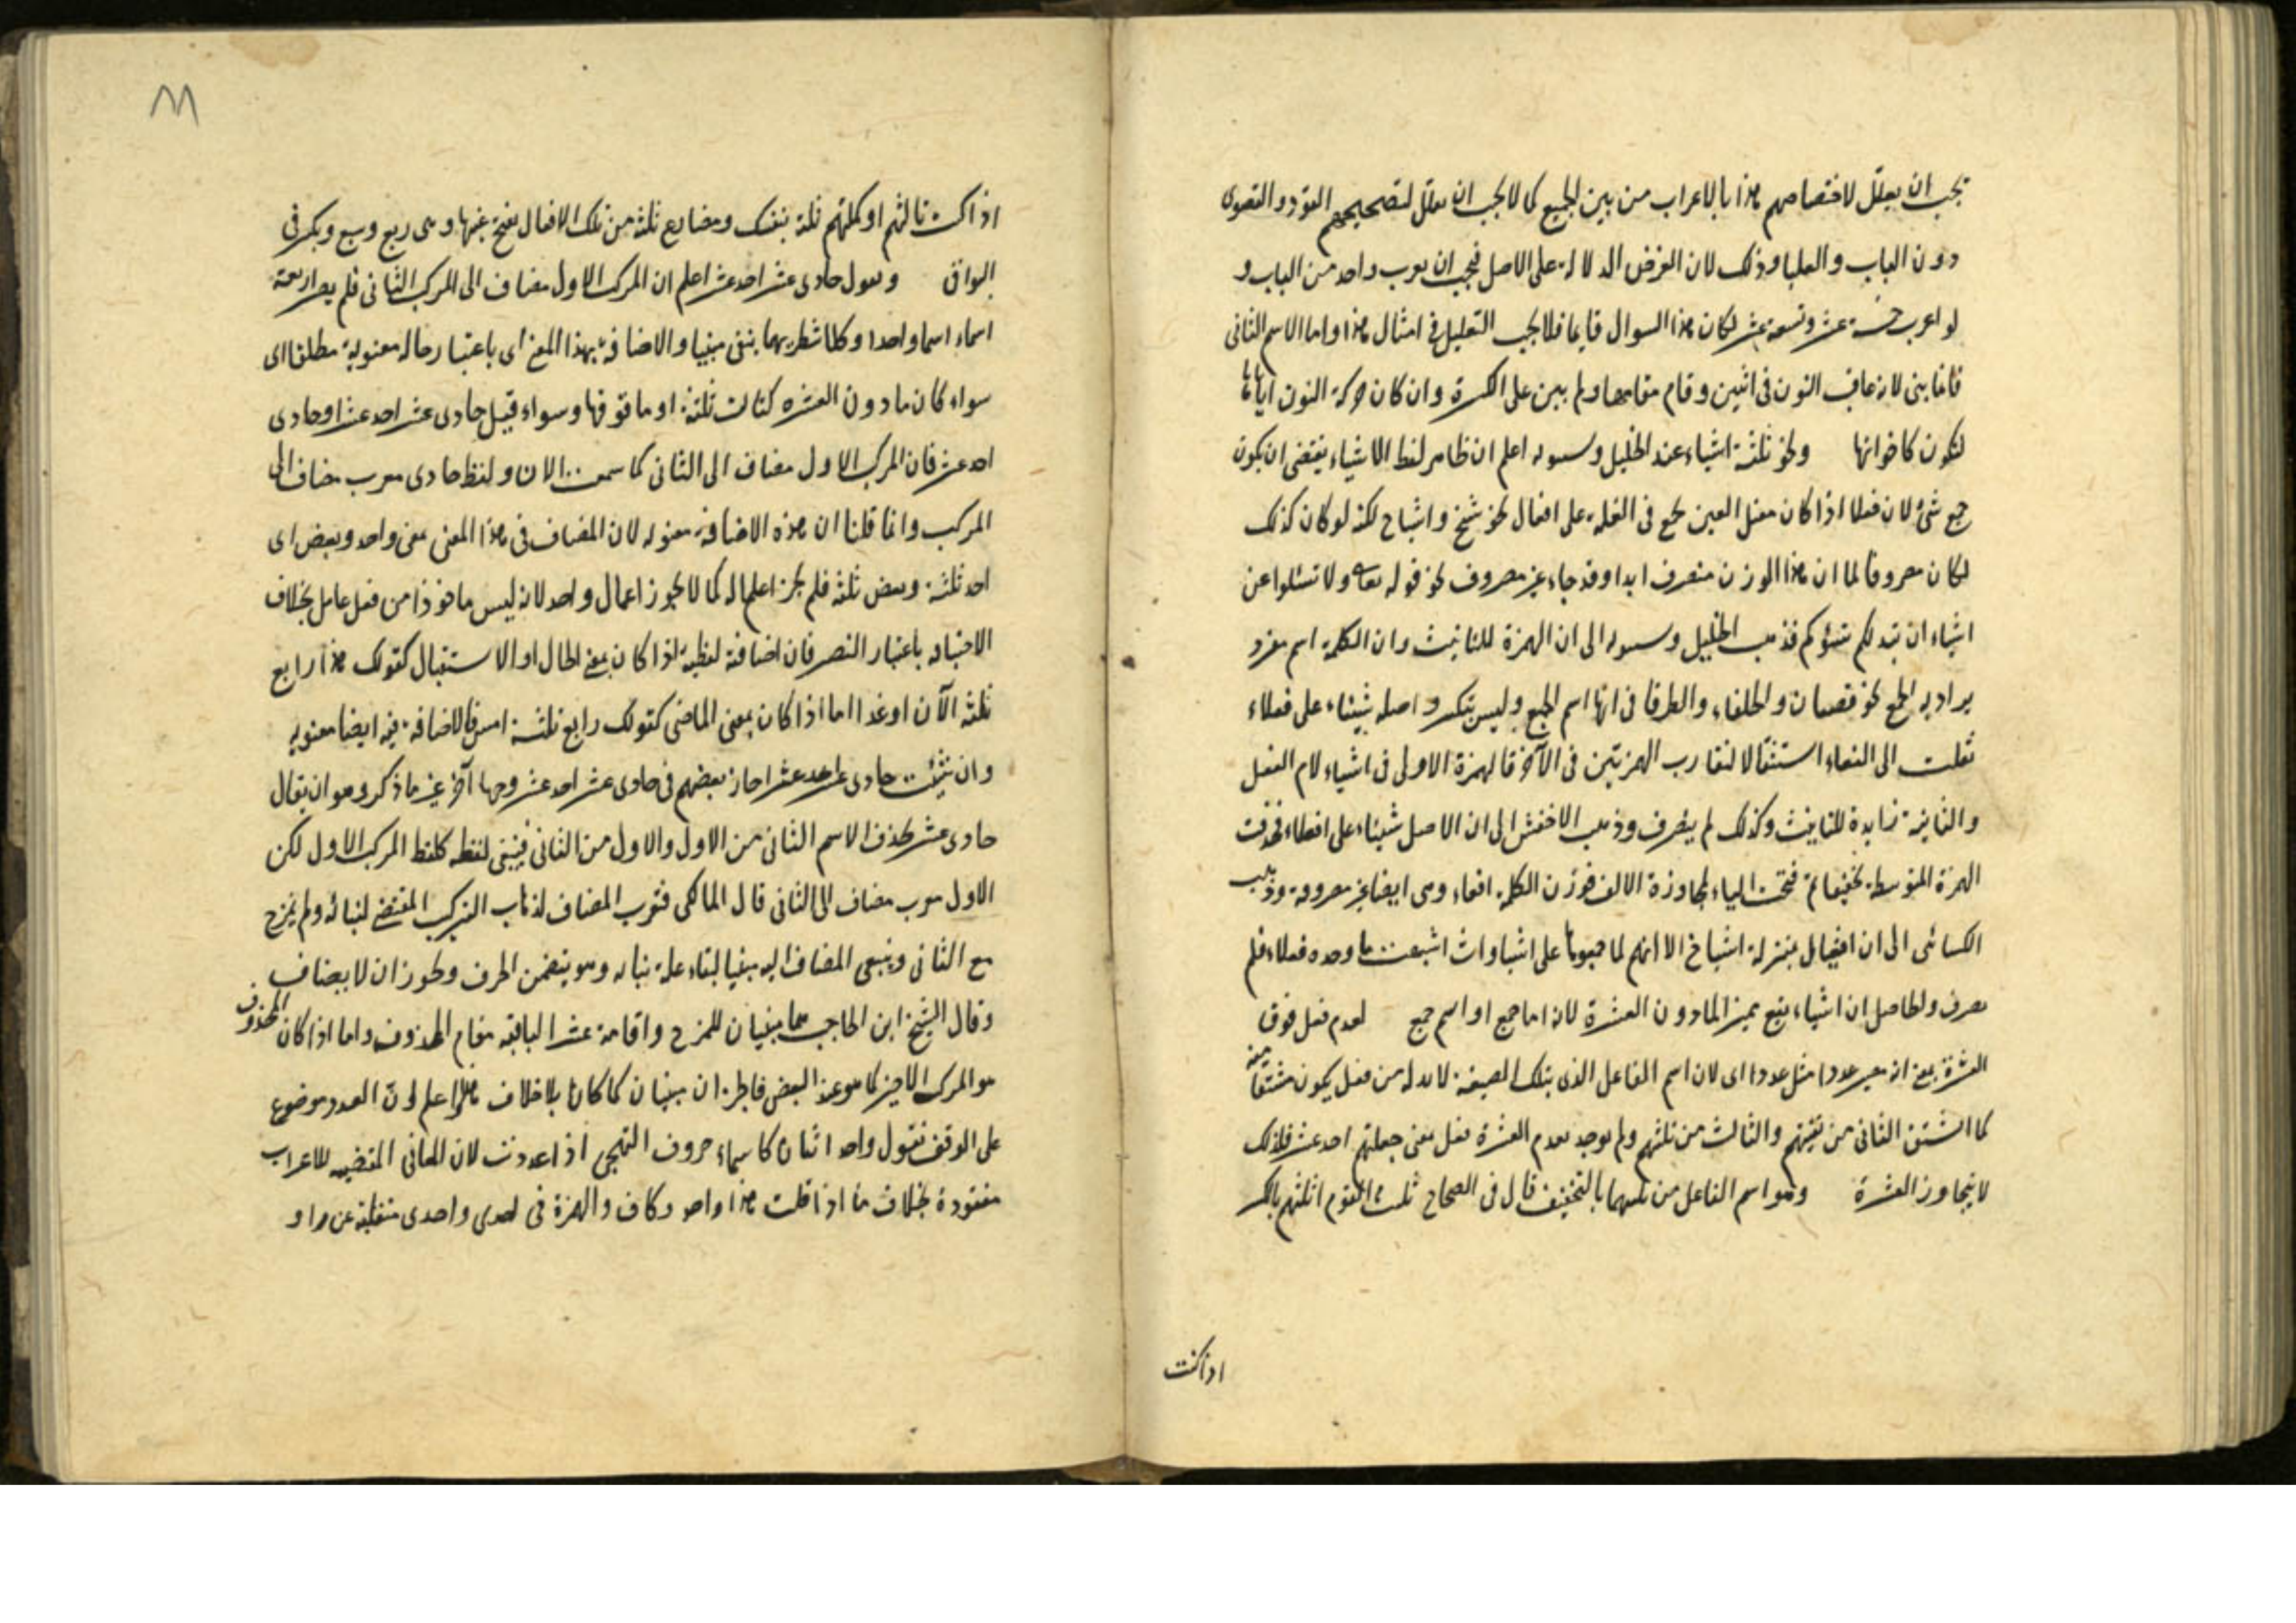 يجب ان يعلل لاختصاصهم هذا بالاعراب من بين الجميع كما لا يجب ان يعلل لتصحيحهم القود والقصوى
دون الباب والعليا وذلك لان الغرض الدلالة على الاصل فيجب ان يعرب واحد من الباب و
لو اعرب خمسة عشر وتسعة عشر لكان هذا السوال قايما فلا يجب التعليل في امثال هذا واما الاسم الثاني
فانما بنى لانه عاقب النون في اثنين وقام مقامها ولم يبن على الكسرة وان كان حركة النون اياها
لتكون كاخواتها ونحو ثلثة اشياء عند الخليل وسيبويه اعلم ان ظاهر لفظ الاشياء يقتضى ان يكون
جمع شئ لان فعلا اذا كان معتل العين يجمع في القلة على افعال نحو شيخ واشياخ لكنه لو كان كذلك
لكان مصروفا لما ان هذا الوزن منصرف ابدا وقد جاء غير مصروف نحو قوله تعالى ولا تسئلوا عن
اشياء ان تبد لكم تسؤكم فذهب الخليل وسيبويه الى ان الهمزة للتانيث وان الكلمة اسم مفرد
يراد به الجمع نحو قصباء والحلفاء والطرفا في انها اسم الجمع وليس بتكسير واصله شيئاء على فعلاء
نقلت الى لفعاء استثقالا لتقارب الهمزتين في الآخر فالهمزة الاولى في اشياء لام الفعل
والثانية زايدة للتانيث وكذلك لم يصرف وذهب الاخفش الى ان الاصل شيئاء على افعلاء فحذفت
الهمزة المتوسطة تخفيفا ثم فتحت الياء لمجاوزة الالف فوزن الكلمة افعاء وهى ايضا غير مصروفة وذهب
الكسائى الى ان افعال بمنزلة اشياخ الا انهم لما جمعوها على اشياوات اشبهت ما وحده فعلاء فلم
يصرف والحاصل ان اشياء يقع مميز المادون العشرة لانه اما جمع او اسم جمع لعدم فعل فوق
العشرة بمعنى انه يصير عددا مثل عدد اى لان اسم الفاعل الذى بتلك الصيغة لا بد له من فعل يكون مشتقا منه
كما اشتق الثانى من ثنيتهم والثالث من ثلثتهم ولم يوجد بعدم العشرة فعل بمعنى جعلتهم احد عشر فلذلك
لا يتجاوز العشرة وهو اسم الفاعل من ثلثهما بالتخفيف قال في الصحاح ثلثت القوم اثلثهم بالكسر
اذا كنت
٨٨
اذا كنت ثالثهم او كملتهم ثلثة بنفسك ومضارع ثلثة من تلك الافعال بفتح عينها وهى ربع وسبع وبكسر في
البواقى وتقول حادى عشر احد عشر اعلم ان المركب الاول مضاف الى المركب الثانى فلم يصر اربعة
اسماء اسما واحدا وكلا شطريهما بنى مبنيا والاضافة بهذا المعنى اى باعتبار حاله معنوية مطلقا اى
سواء كان مادون العشره كثالث ثلثة او ما فوقها وسواء قيل حادى عشر احد عشر او حادى
احد عشر فان المركب الاول مضاف الى الثانى كما سمعت الان ولفظ حادى معرب مضاف الى
المركب وانما قلنا ان هذه الاضافة معنويه لان المضاف في هذا المعنى بمعنى واحد وبعض اى
احد ثلثة وبعض ثلثة فلم يجز اعماله كما لا يجوز اعمال واحد لانه ليس ماخوذا من فعل عامل بخلاف
الاخير له باعتبار التصير فان اضافته لفظية اذا كان بمعنى الحال او الاستقبال كقولك هذا رابع
ثلثة الآن او غدا اما اذا كان بمعنى الماضى كقولك رابع ثلثة امس فالاضافة فيه ايضا معنويه
وان شئت حادى احد عشر اجاز بعضهم في حادى عشر احد عشر وجها آخر غير ما ذكر وهو ان يقال
حادى عشر بحذف الاسم الثانى من الاول والاول من الثانى فيبقى لفظه كلفظ المركب الاول لكن
الاول معرب مضاف الى الثانى قال المالكى فتعرب المضاف لذهاب التركيب المقتضى لبنائه ولم يمزج
مع الثانى ويبقى المضاف اليه مبنيا لبقاء علة بنائه وهو تضمن الحرف ويجوز ان لا يضاف
وقال الشيخ ابن الحاجب هما مبنيان للمزج واقامة عشر الباقية مقام المحذوف واما اذا كان المحذوف
هو المركب الاخير كما هو عند البعض فالجزءان مبنيان كما كانا بلا خلاف اعلم ان العدد موضوع
على الوقف تقول واحد اثنان كاسماء حروف التهجى اذا عددت لان المعانى المقتضيه للاعراب
مفقودة بخلاف ما اذا قلت هذا واحد وكاف والهمزة في احدى واحدى منقلبة عن واو